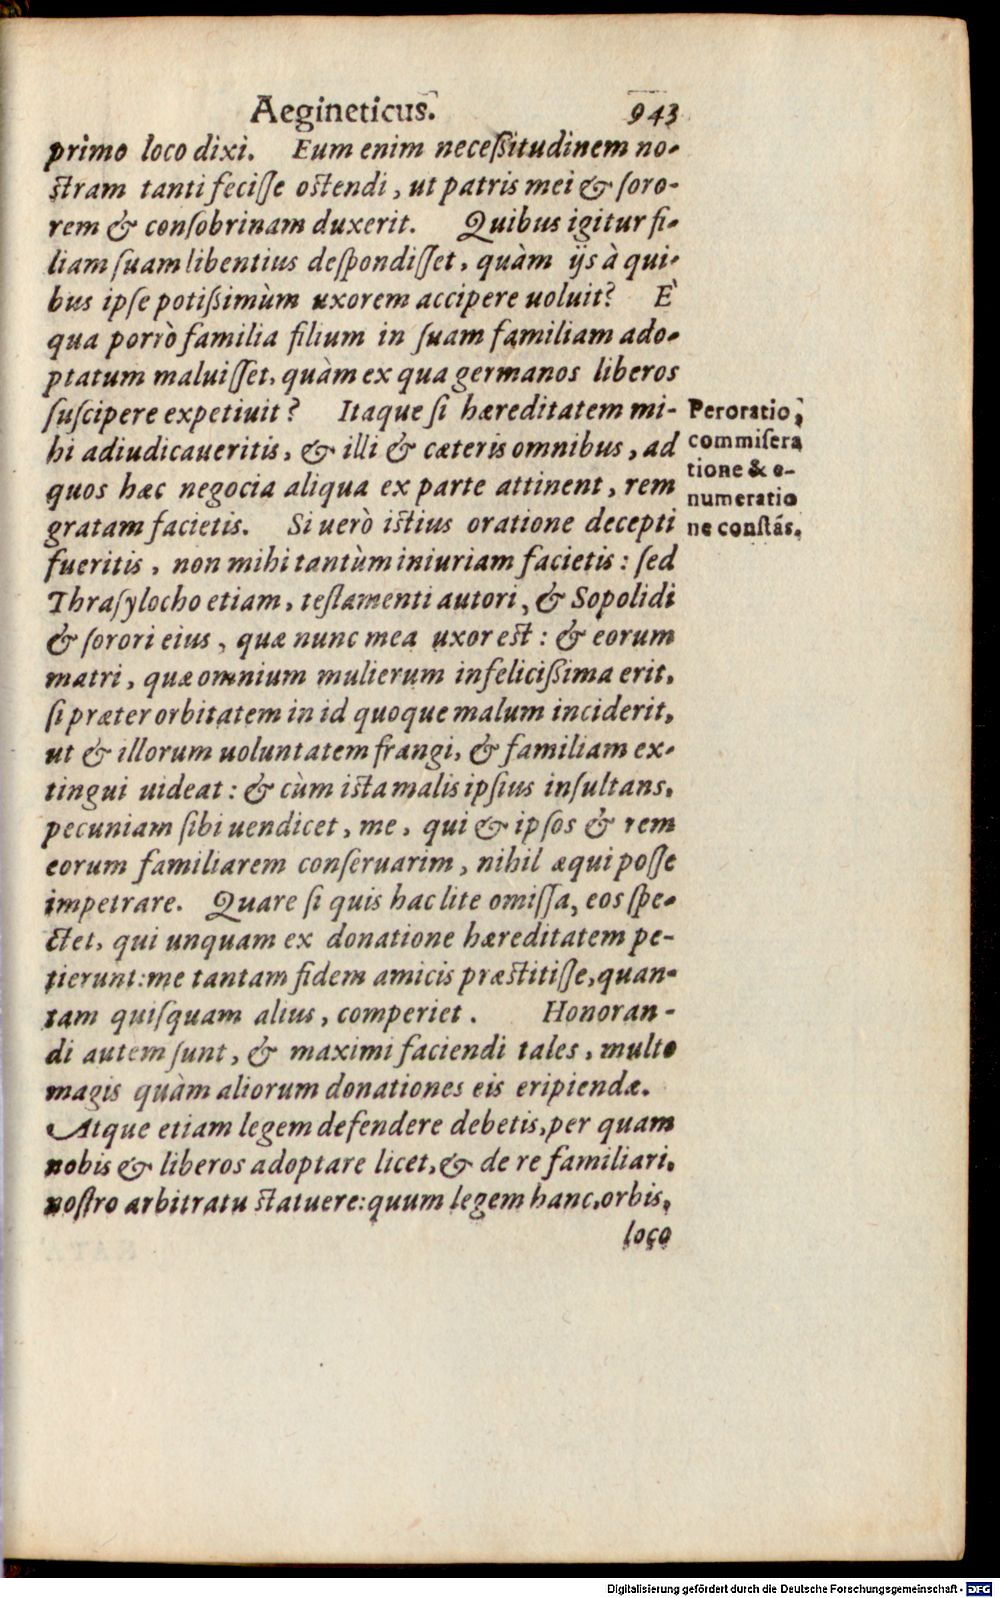 Aegineticus. 943
primo loco dixi. Eum enim neceßitudinem no-
ſtram tanti feciſſe oſtendi, ut patris mei & ſoro-
rem & conſobrinam duxerit. Quibus igitur fi-
liam ſuam libentius deſpondiſſet, quàm ijs à qui-
bus ipſe potißimùm uxorem accipere uoluit? È
qua porrò familia filium in ſuam familiam ado-
ptatum maluiſſet, quàm ex qua germanos liberos
ſuſcipere expetiuit? Itaque ſi hæreditatem mi-
hi adiudicaueritis, & illi & cæteris omnibus, ad
quos hæc negocia aliqua ex parte attinent, rem
gratam facietis. Si uerò iſtius oratione decepti
fueritis, non mihi tantùm iniuriam facietis: ſed
Thraſylocho etiam, teſtamenti autori, & Sopolidi
& ſorori eius, quæ nunc mea uxor eſt: & eorum
matri, quæ omnium mulierum infelicißima erit,
ſi præter orbitatem in id quoque malum inciderit,
ut & illorum uoluntatem frangi, & familiam ex-
tingui uideat: & cùm iſta malis ipſius inſultans,
pecuniam ſibi uendicet, me, qui & ipſos & rem
eorum familiarem conſeruarim, nihil æqui poſſe
impetrare. Quare ſi quis hac lite omiſſa, eos ſpe-
ctet, qui unquam ex donatione hæreditatem pe-
tierunt: me tantam fidem amicis præſtitiſſe, quan-
tam quiſquam alius, comperiet. Honoran-
di autem ſunt, & maximi faciendi tales, multo
magis quàm aliorum donationes eis eripiendæ.
Atque etiam legem defendere debetis, per quam
nobis & liberos adoptare licet, & de re familiari,
noſtro arbitratu ſtatuere: quum legem hanc, orbis,
loco
Peroratio,
commiſera
tione & e-
numeratio
ne conſtãs.
Digitalisierung gefördert durch die Deutsche Forschungsgemeinschaft - DFG